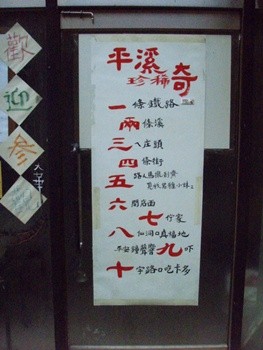 歡
迎
參
平溪
珍稀奇
一條鐵路
兩條溪
三個庄頭
四條街
五路人馬
六間店面
七佇家
八仙洞口真福地
平安鐘聲響九吓
十字路口吃卡多